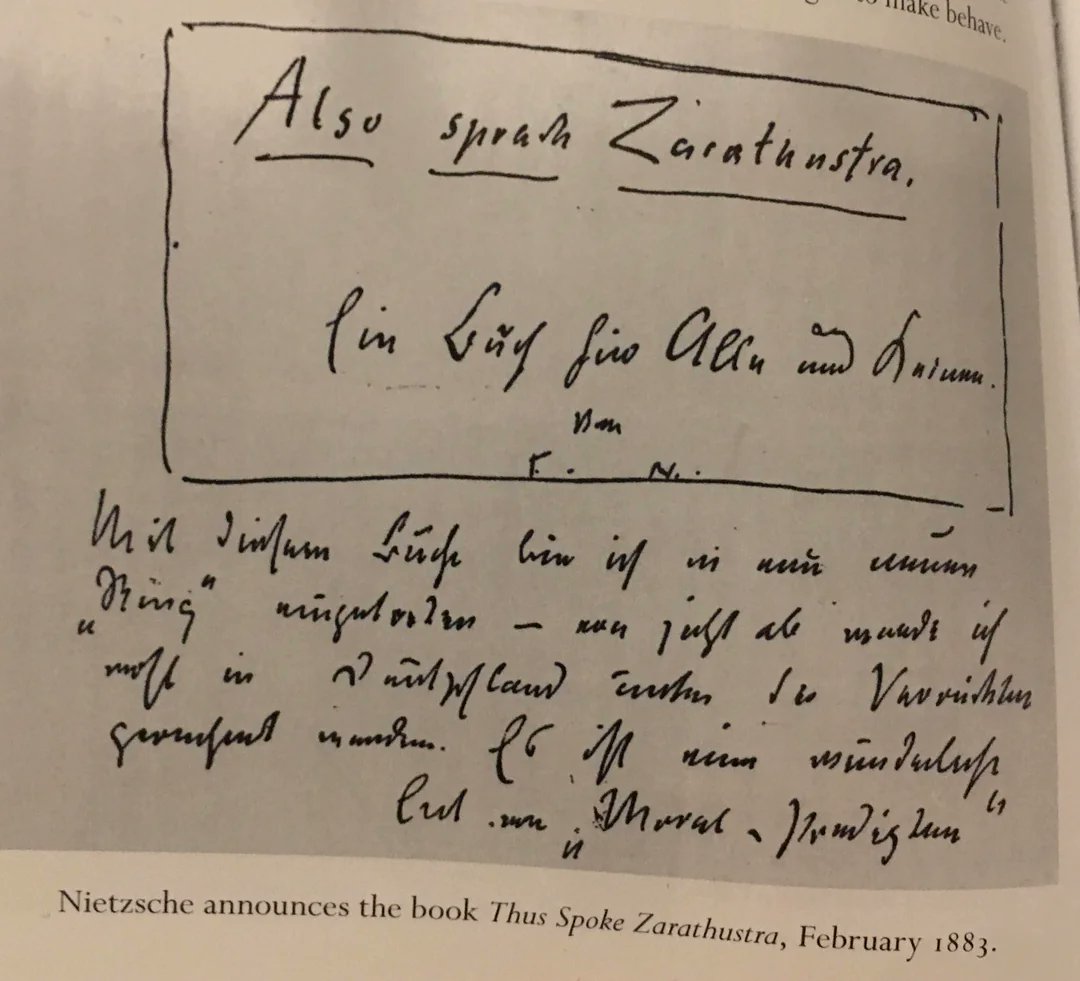 to make behave.
Also sprach Zarathustra.
Ein Buch für Alle und Keinen.
Von
F. N.
Mit diesem Buche bin ich in einen neuen
„Ring“ eingetreten — von jetzt ab werde ich
wohl in Deutschland unter die Verrückten
gerechnet werden. Es ist eine wunderliche
Art von „Moral-Predigten“
Nietzsche announces the book Thus Spoke Zarathustra, February 1883.